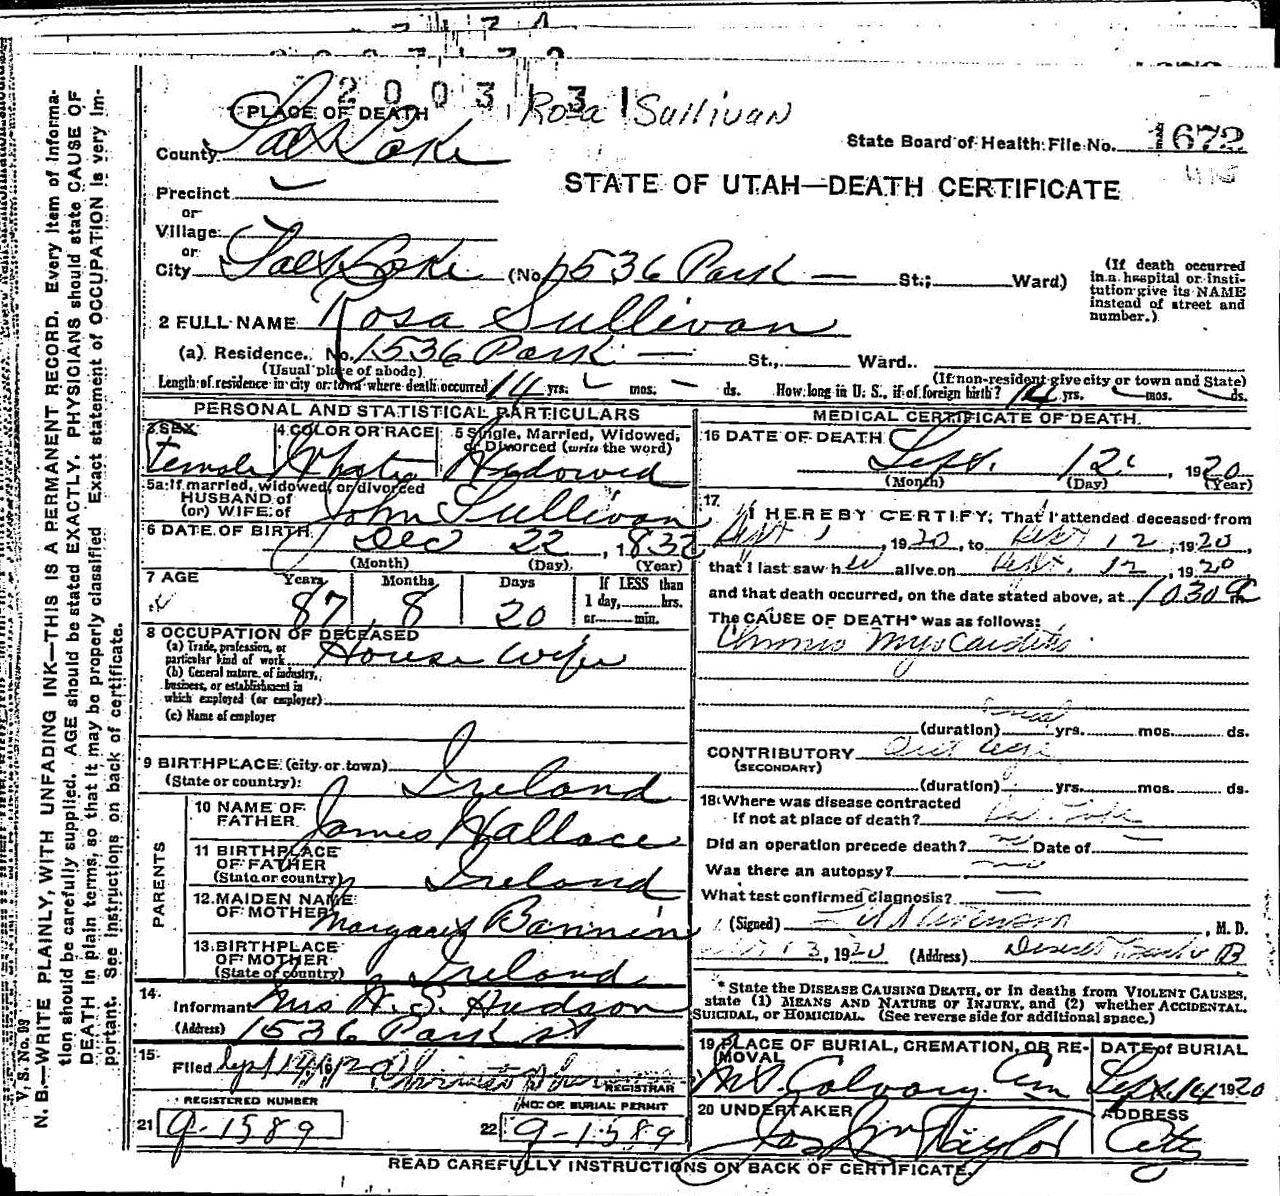 200313 Rosa Sullivan
PLACE OF DEATH
County Salt Lake
State Board of Health File No. 1672
STATE OF UTAH—DEATH CERTIFICATE
Precinct
or
Village
or
City Salt Lake (No. 1536 Park — St.; Ward)
(If death occurred in a hospital or institution give its NAME instead of street and number.)
2 FULL NAME Rosa Sullivan
(a) Residence. No. 1536 Park — St., Ward.
(Usual place of abode) (If non-resident give city or town and State)
Length of residence in city or town where death occurred 14 yrs. — mos. — ds. How long in U. S., if of foreign birth? yrs. — mos. — ds.
PERSONAL AND STATISTICAL PARTICULARS
3 SEX Female
4 COLOR OR RACE White
5 Single, Married, Widowed, or Divorced (write the word) Widowed
5a If married, widowed, or divorced
HUSBAND of
(or) WIFE of John Sullivan
6 DATE OF BIRTH Dec 22, 1832
(Month) (Day) (Year)
7 AGE Years 87 Months 8 Days 20 If LESS than 1 day, hrs. or min.
8 OCCUPATION OF DECEASED
(a) Trade, profession, or particular kind of work House wife
(b) General nature of industry, business, or establishment in which employed (or employer)
(c) Name of employer
9 BIRTHPLACE (city or town)
(State or country) Ireland
PARENTS
10 NAME OF FATHER James Wallace
11 BIRTHPLACE OF FATHER (State or country) Ireland
12 MAIDEN NAME OF MOTHER Margaret
13 BIRTHPLACE OF MOTHER (State or country) Ireland
14 Informant Mrs H. S. Hudson
(Address) 1536 Park st
15 Filed Sept 14
REGISTRAR
REGISTERED NUMBER
21 9-1589
NO. OF BURIAL PERMIT
22 9-1589
MEDICAL CERTIFICATE OF DEATH
16 DATE OF DEATH Sept. 12 1920
(Month) (Day) (Year)
17 I HEREBY CERTIFY, That I attended deceased from
Sept 1, 1920, to Sept 12, 1920,
that I last saw her alive on Sept. 12, 1920
and that death occurred, on the date stated above, at 1030 m
The CAUSE OF DEATH* was as follows:
Chronic Myocarditis
(duration) several yrs. mos. ds.
CONTRIBUTORY Old age
(SECONDARY)
(duration) yrs. mos. ds.
18 Where was disease contracted
If not at place of death?
Did an operation precede death? no Date of —
Was there an autopsy? no
What test confirmed diagnosis? —
(Signed) Stevenson, M. D.
13, 1920 (Address) Deseret Bank B
* State the DISEASE CAUSING DEATH, or in deaths from VIOLENT CAUSES, state (1) MEANS AND NATURE OF INJURY, and (2) whether ACCIDENTAL, SUICIDAL, or HOMICIDAL. (See reverse side for additional space.)
19 PLACE OF BURIAL, CREMATION, OR REMOVAL Mt. Calvary Cem
DATE of BURIAL Sept. 14 1920
20 UNDERTAKER Jos Wm Taylor
ADDRESS City
READ CAREFULLY INSTRUCTIONS ON BACK OF CERTIFICATE.
V. S. No. 99
N. B.—WRITE PLAINLY, WITH UNFADING INK—THIS IS A PERMANENT RECORD. Every item of information should be carefully supplied. AGE should be stated EXACTLY. PHYSICIANS should state CAUSE OF DEATH in plain terms, so that it may be properly classified. Exact statement of OCCUPATION is very important. See instructions on back of certificate.